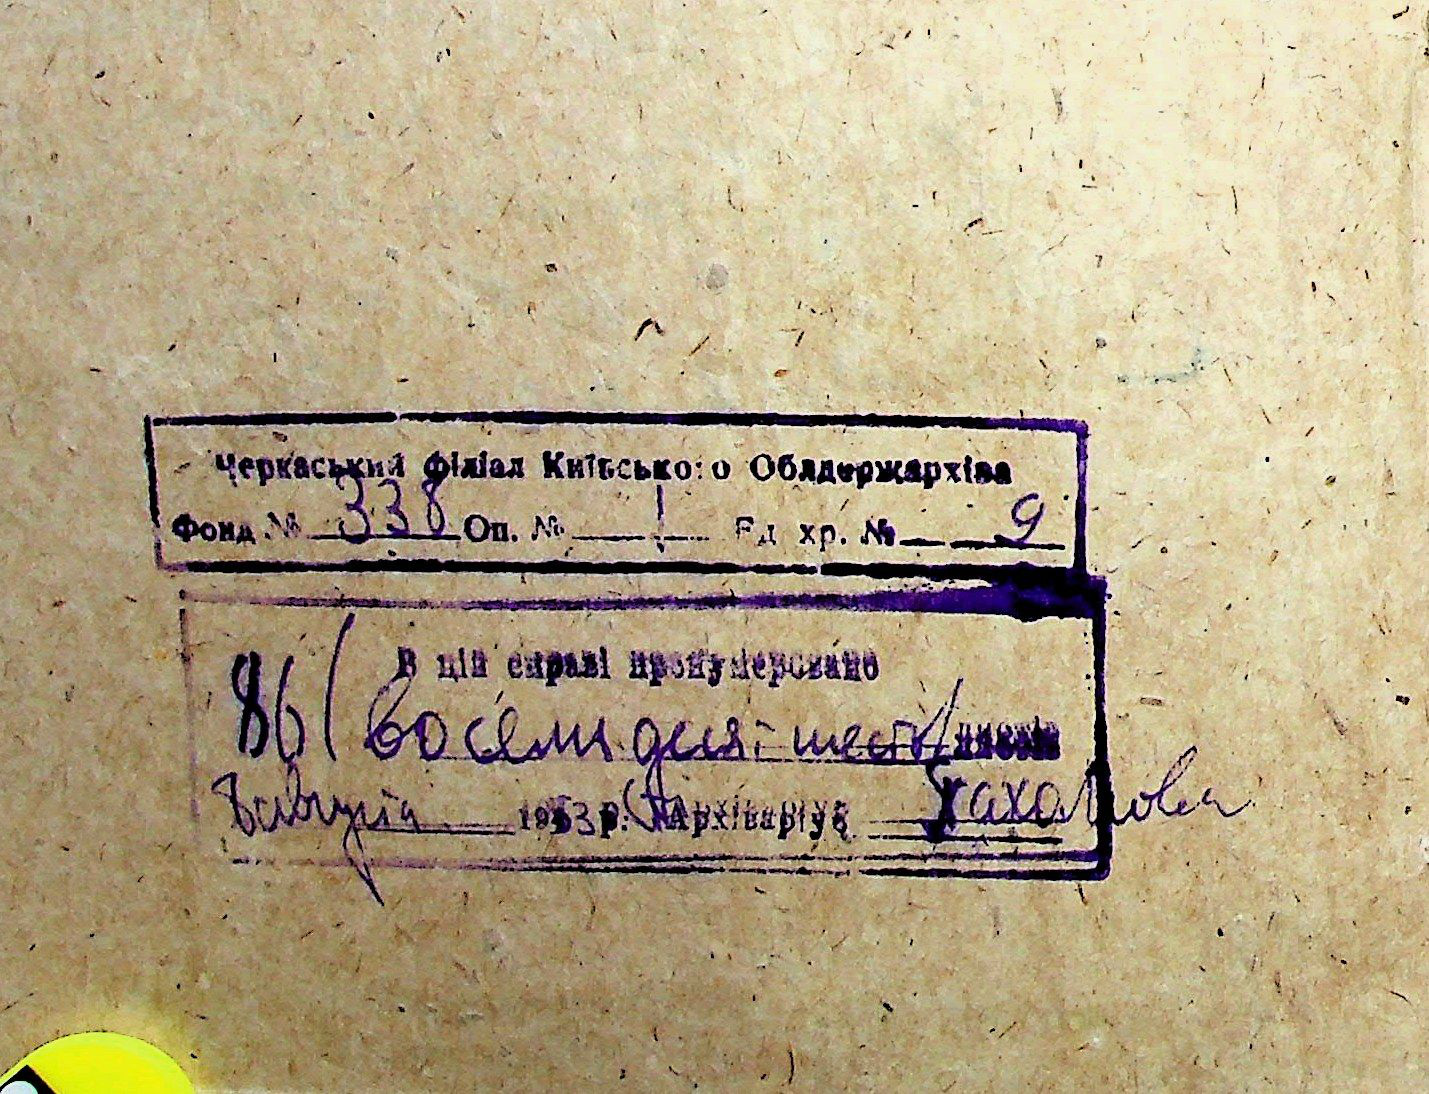 Черкаський філіал Київського Облдержархіва
Фонд № 338 Оп. № 1 Ед хр. № 9
В цій справі пронумеровано
86 (восемдесят шесть) листів
8 августа 1953 р. Архіваріус